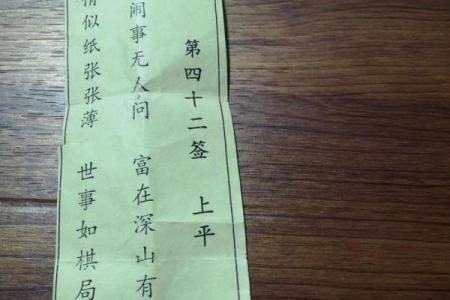 第四十二签 上平
闹事无人问 富在深山有
情似纸张张薄 世事如棋局